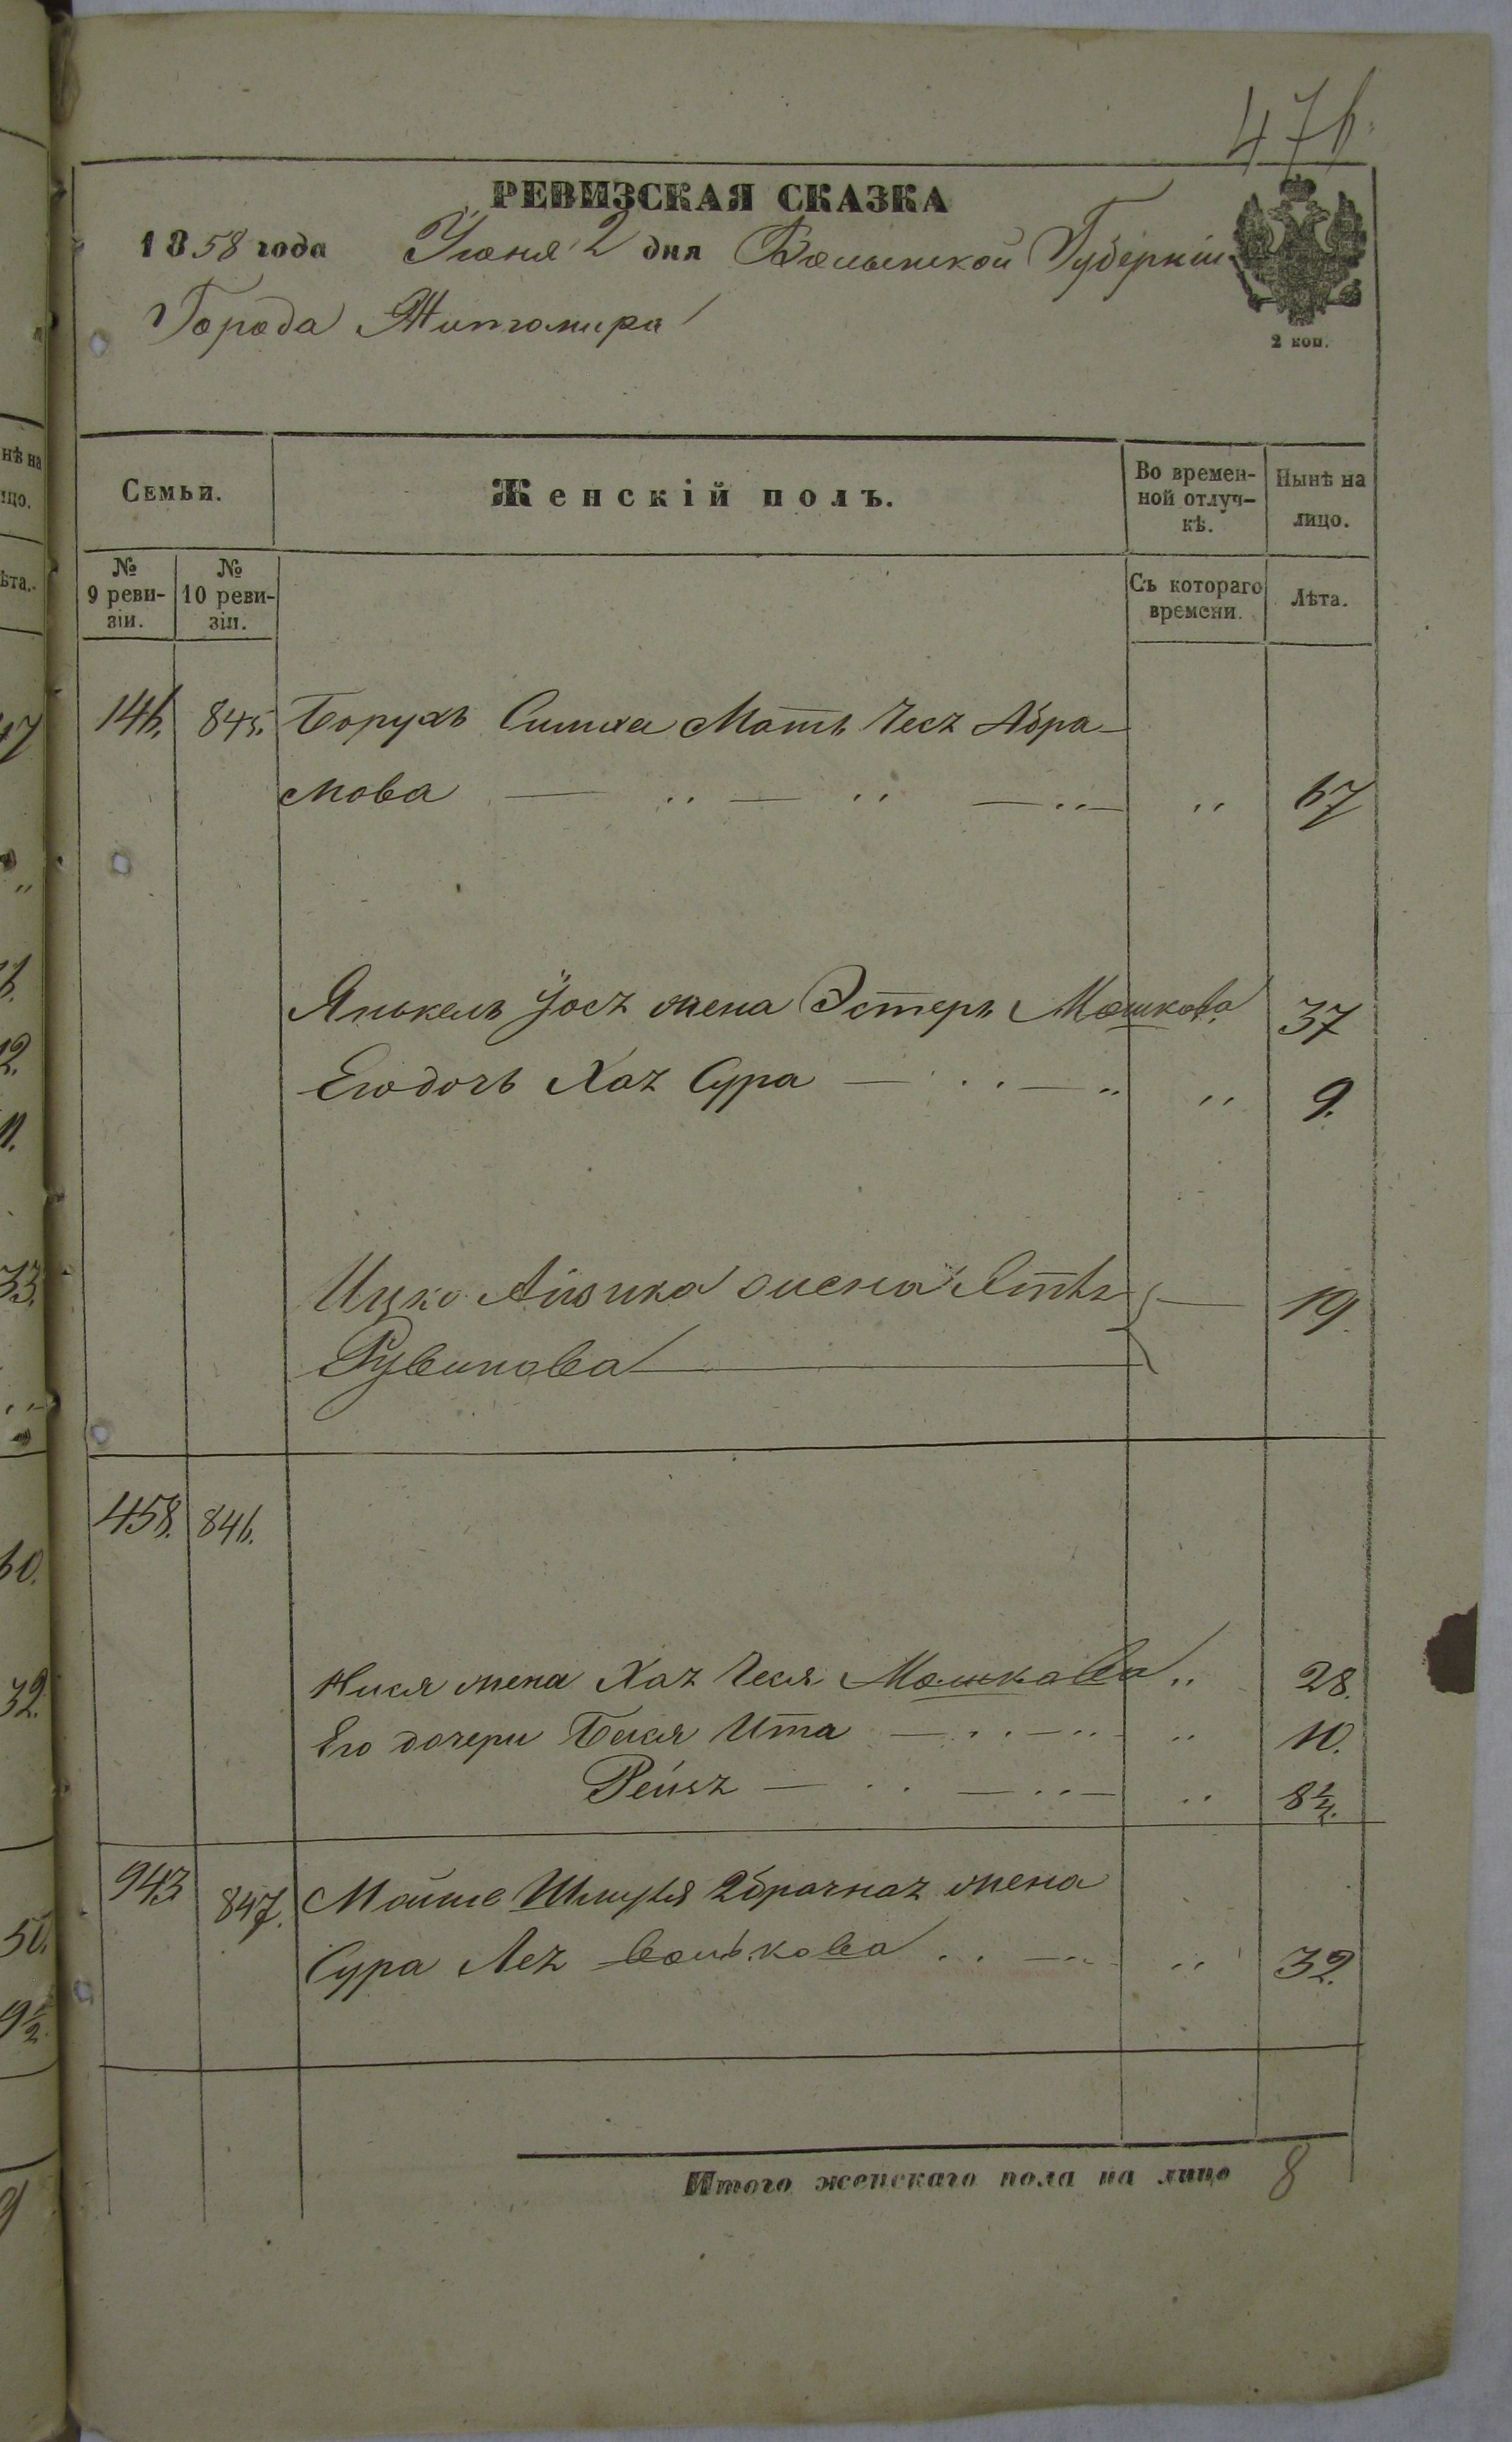 476.
РЕВИЗСКАЯ СКАЗКА
1858 года Июня 2 дня Волынской Губерніи
Города Житомира
2 коп.
Семьи.
Женскій полъ.
Во времен-
ной отлуч-
кѣ.
Нынѣ на
лицо.
№
9 реви-
зіи.
№
10 реви-
зіи.
Съ котораго
времени.
Лѣта.
146. 845. Борухъ Симха Мать Чася Абра-
мова — „ — „ — „ — „ 67
Янкель Іося жена Эстеръ Мошкова 37
Его дочь Хая Сура — „ — „ „ 9.
Ицко Айзика жена
Рувинова — 19.
458. 846.
Нися жена Хая Чеся Мошкова „ 28.
Его дочери Бися Ита — „ — „ „ 10.
Рейзя — „ — „ — „ 8 1/2.
943 847. Мойше Шмуля 2 брачная жена
Сура Лея Волькова „ — „ „ 32.
Итого женскаго пола на лицо 8